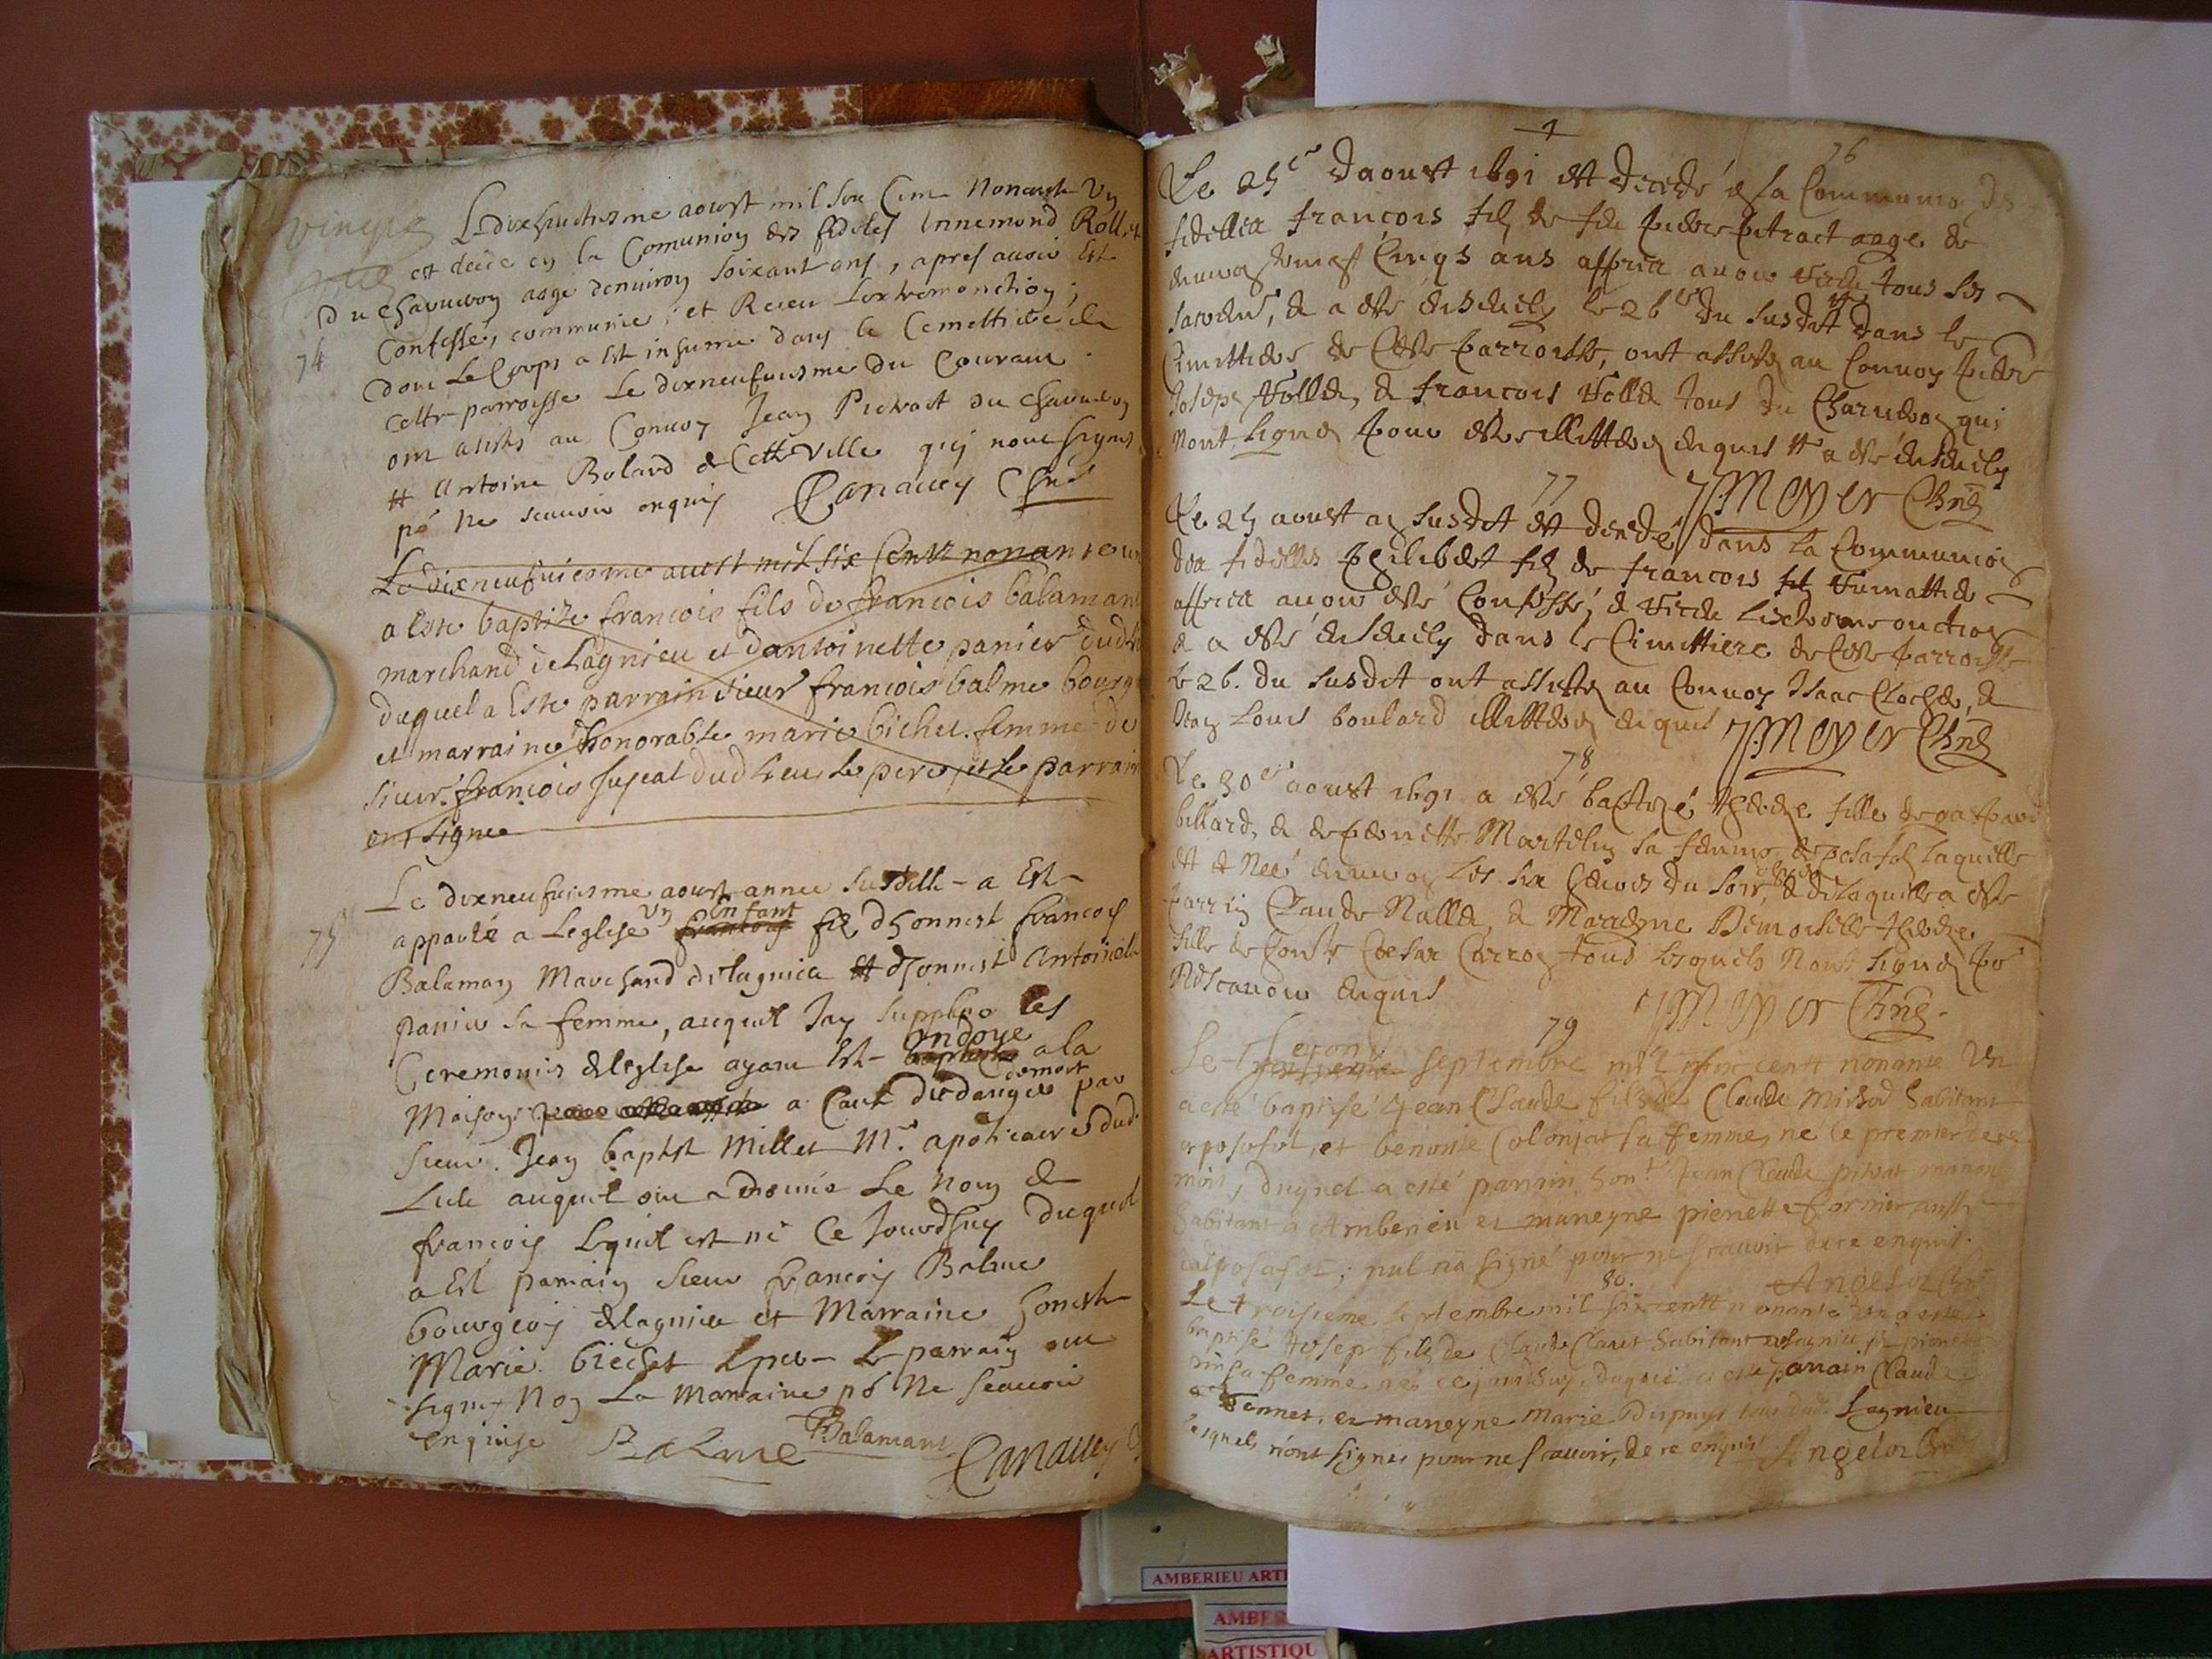 vingt
Le dixhuictiesme aoust mil six Cens Nonante Un
est decede en la Comunion des fideles Innemond Rollet
du Charveyron aage denviron Soixant ans, apres avoir Est
74
Confesse, communie, et Receu Lextremonction,
dont Le Corps a Est inhume dans le Cemettiere de
Cette parroisse Le dixneufviesme du Courant
ont assistes au Convoy Jean Pietract du Charveyron
et Antoine Bolard de Cette Ville qui nont signes
po Ne scavoir enquis Canauey
Le dixneufviesme aoust mil six Cents nonante un
a Este baptize francois fils de francois balamant
marchand de Lagnieu et dantoinette panier dud
duquel a Este parrain sieur francois balme bourg
et marraine honorable marie bichet femme de
sieur francois dud Lieu le pere et le parrain
ont signe
Le dixneufviesme aoust annee susditte a Est
75
apporté a Leglise un Enfant francois fils dhonnest francois
Balaman Marchand de Lagnieu et dhonnest Antoinette
panier sa femme, auquel Jay supplee les
Ceremonies de leglise ayant Est ondoye a la
Maison a Cause du danger de mort par
sieur Jean baptist Millet Mr. apoticaire dud
Lieu auquel on a donné Le nom de
francois Lequel est né Ce Jourdhuy duquel
a Est parrain sieur francois Balme
bourgeois de Lagnieu et Marraine honest
Marie biechet Le pere Le parrain ont
signe Non La Marraine po Ne scavoir
enquise Balme Balamant Canauey
76
Le 25e daoust 1691 est decedé en la Communion des
fidelles francois fils de feu pierre pitract aage de
environ vingt Cinqs ans apres avoir receu tous les
sacrements, et a esté ensevely le 26e du susdit dans le
Cimettiere de Cette parroisse, ont assistes au Convoy pierre
Joseph Rollet, et francois Rollet tous du Charveron qui
nont signes pour estre illitteres enquis et a esté ensevely
Moyer
77
Le 25 aoust an susdit est decedé dans la Communion
des fidelles philibert fils de francois
apres avoir esté Confessé, et receu Lextremonction
et a esté ensevely dans le Cimittiere de Cette parroisse
le 26. du susdit ont assistes au Convoy Isaac Clochet, et
Jean Louis boulard illitteres enquis Moyer
78
Le 30e aoust 1691 a esté baptizé fille de gaspard
billard, et de pernette Martelin sa femme de posafol laquelle
est Neé environ les six heures du soir, et de laquelle a esté
parrin Claude Nallet, et Mareyne Demoiselle
fille de Cesar Carron tous lesquels Nont signes po
Ne scavoir enquis Moyer
79
Le second septembre mil six centt nonante Un
a esté baptisé Jean Claude fils de Claude Mishod habitant
a posafol, et benoite Colonjat sa femme, né le premier de ce
mois, duquel a esté parrain hont. Jean Claude pitrat
habitant a Amberieu et mareyne pierrette fornier aussi
de posafol; nul na signé pour ne scavoir de ce enquis.
Angelot
80.
Le troisieme septembre mil six centt nonante un a esté
baptisé Josep fils de Claude Claret habitant a Lagnieu et pierrette
sa femme né ce jourdhuy, duquel a esté parrain Claude
Bonnet, et mareyne Marie Dupuys tous dud. Lagnieu
lesquels n'ont signes pour ne scavoir, de ce enquis Angelot
AMBERIEU ARTI
AMBER
ARTISTIQU